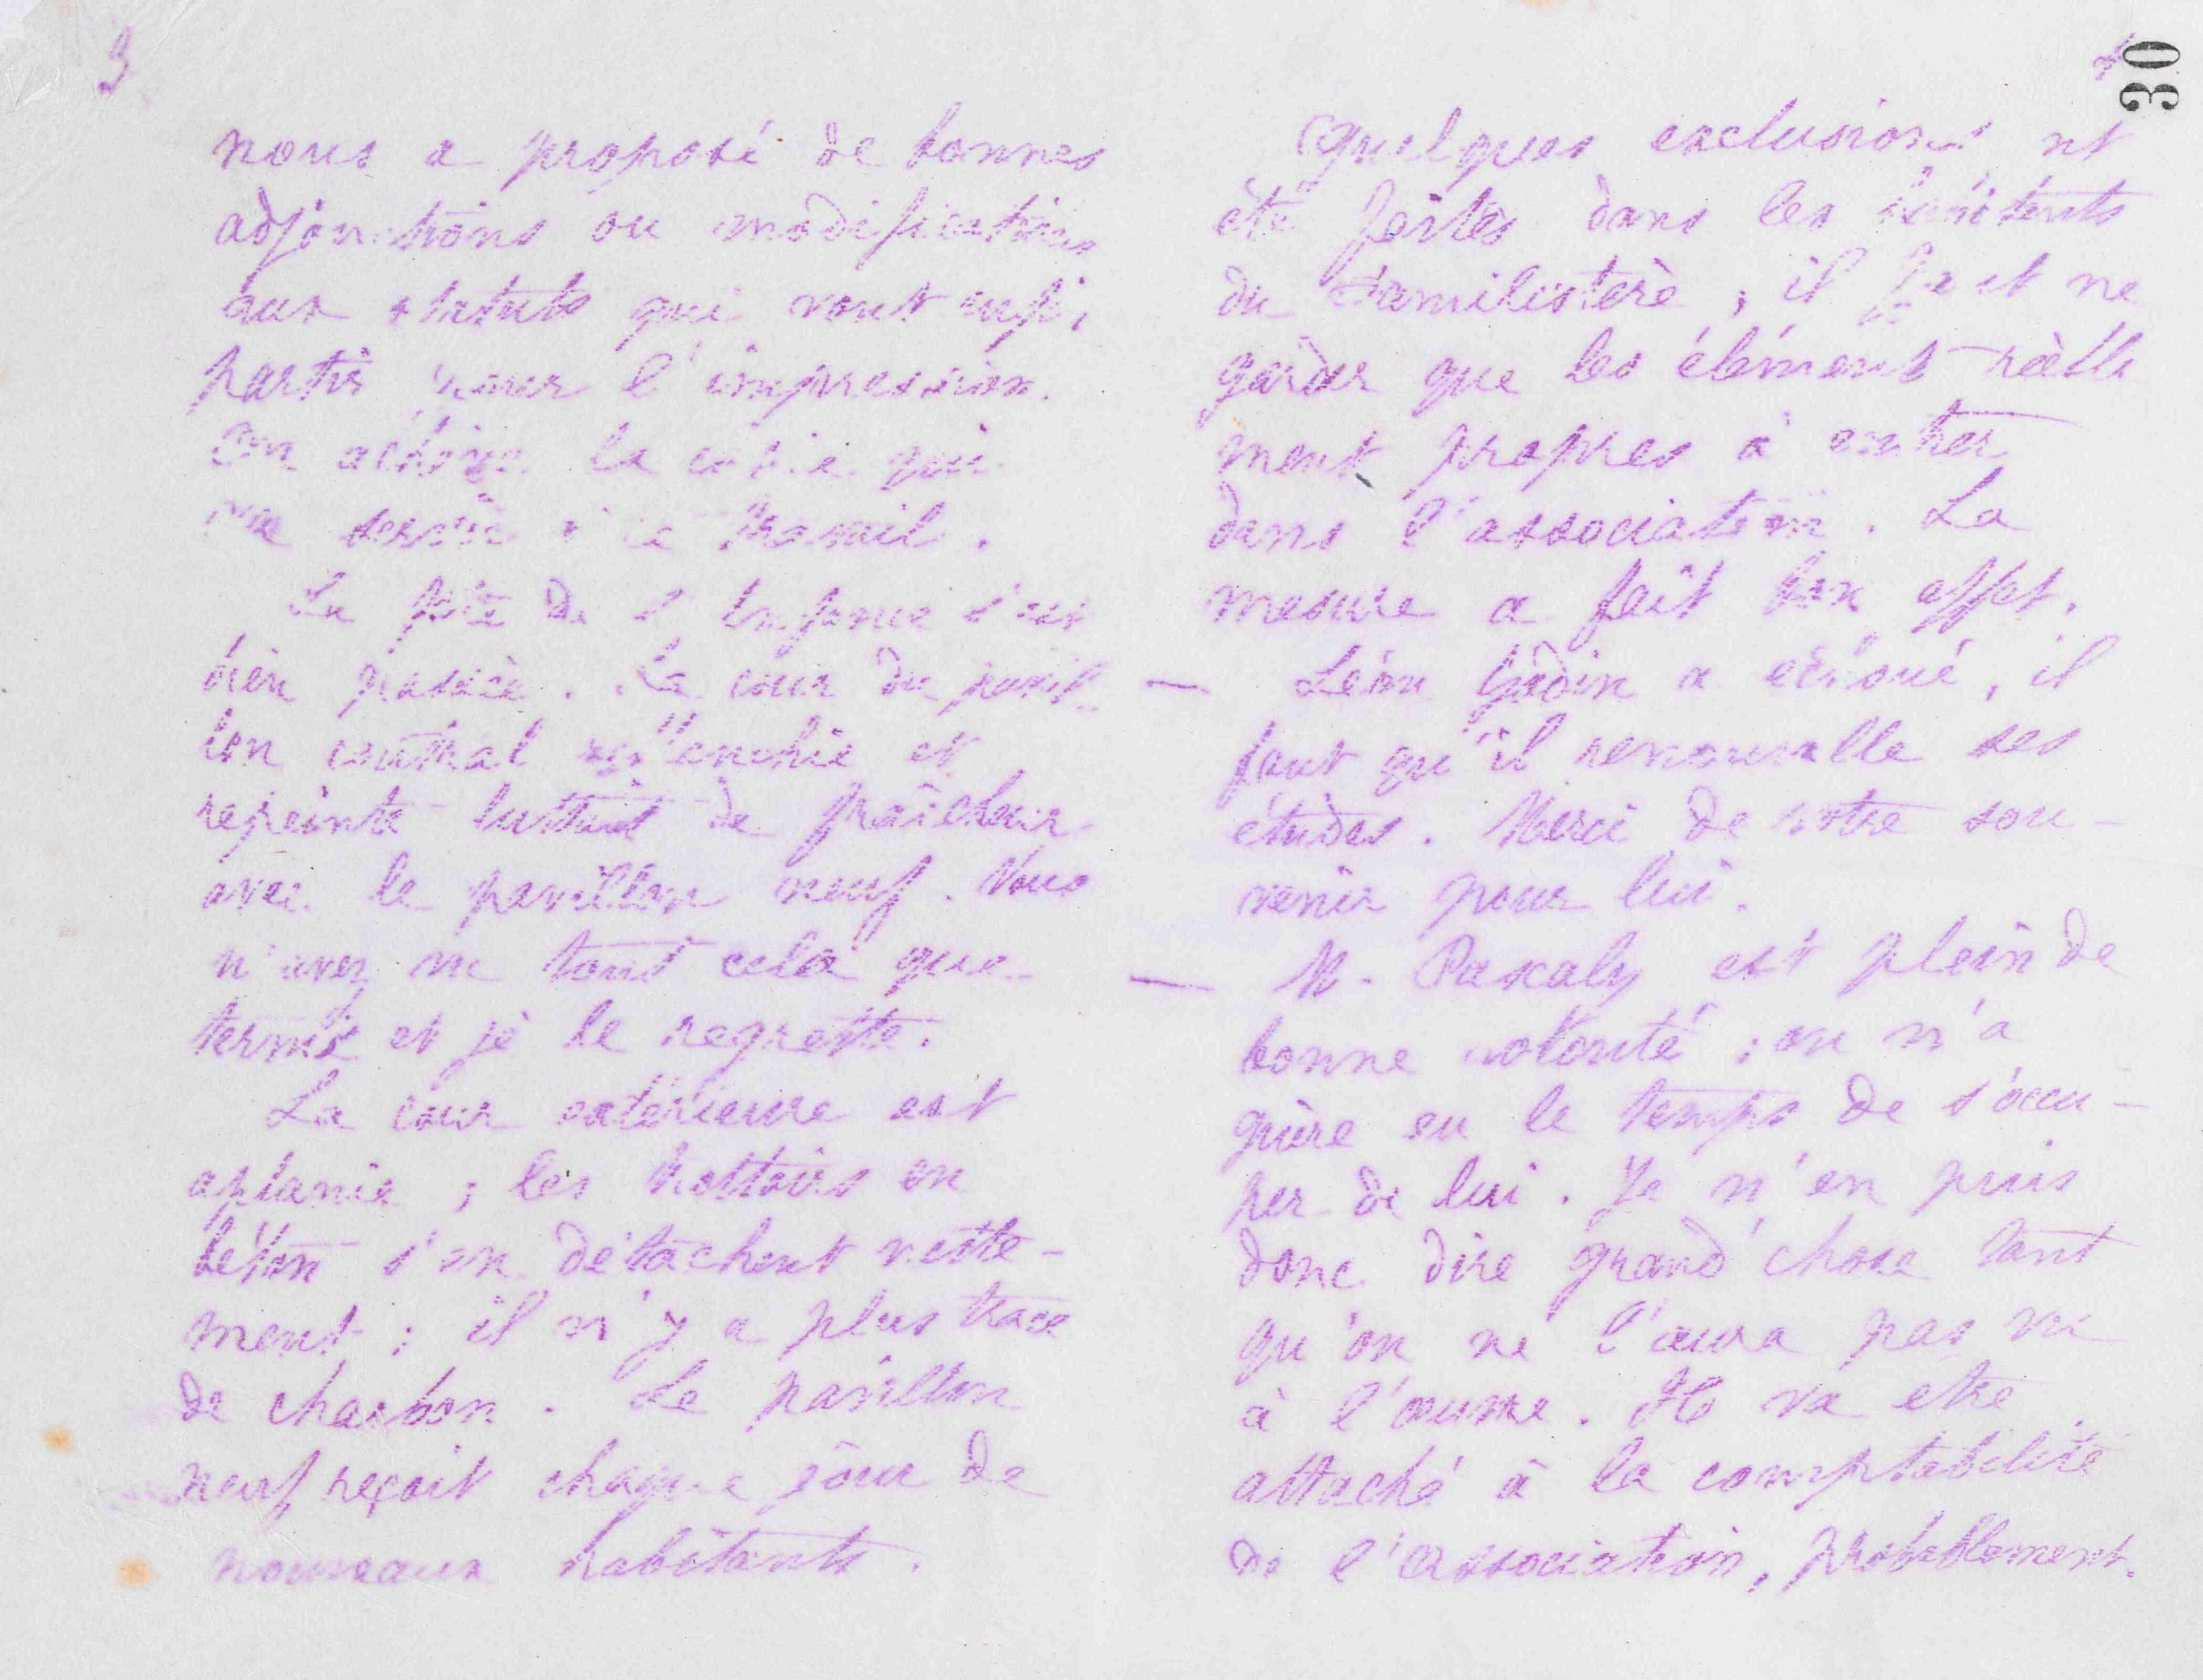 3
nous a proposé de bonnes
adjonctions ou modifications
aux statuts qui vont enfin
partir pour l'impression.
On achève la copie qui
va servir à ce travail.
La fête de l'Enfance s'est
bien passée. La cour du pavil-
lon central reblanchie et
repeinte luttait de fraîcheur
avec le pavillon neuf. Vous
n'avez vu tout cela que
terme et je le regrette.
La cour extérieure est
aplanie ; les trottoirs en
béton s'en détachent nette-
ment ; il n'y a plus trace
de charbon. Le pavillon
neuf reçoit chaque jour de
nouveaux habitants.
4
30
Quelques exclusions nt
été faites dans les habitants
du Familistère ; il faut ne
garder que les élément réelle
ment propres à entrer
dans l'association. La
mesure a fait bon effet.
— Léon Godin a échoué, il
faut qu'il renouvelle ses
études. Merci de votre sou-
venir pour lui.
— M. Pascaly est plein de
bonne volonté ; on n'a
guère eu le temps de s'occu-
per de lui. Je n'en puis
donc dire grand'chose tant
qu'on ne l'aura pas vu
à l'œuvre. Il va être
attaché à la comptabilité
de l'association, probablement.